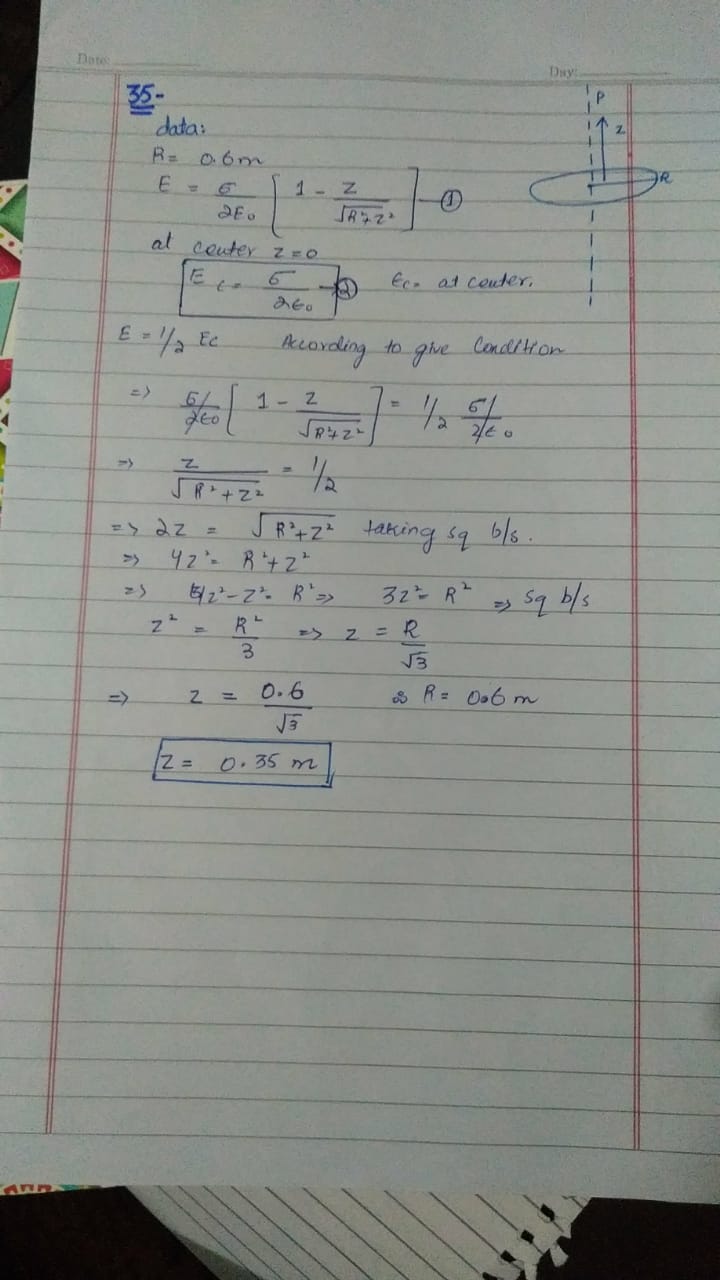 Date:
Day:
35-
data:
P
z
R
R= 0.6m
E = σ/2ε₀ [ 1 - z/√R²+z² ] - ①
at center z=0
Ec = σ/2ε₀ - ② Ec= at center.
E = 1/2 Ec According to give Condition
=> σ/2ε₀ [ 1 - z/√R²+z² ] = 1/2 σ/2ε₀
=> z/√R²+z² = 1/2
=> 2z = √R²+z² taking sq b/s.
=> 4z² = R²+z²
=> 4z²-z² = R² => 3z² = R² => sq b/s
z² = R²/3 => z = R/√3
=> z = 0.6/√3 R= 0.6 m
z = 0.35 m